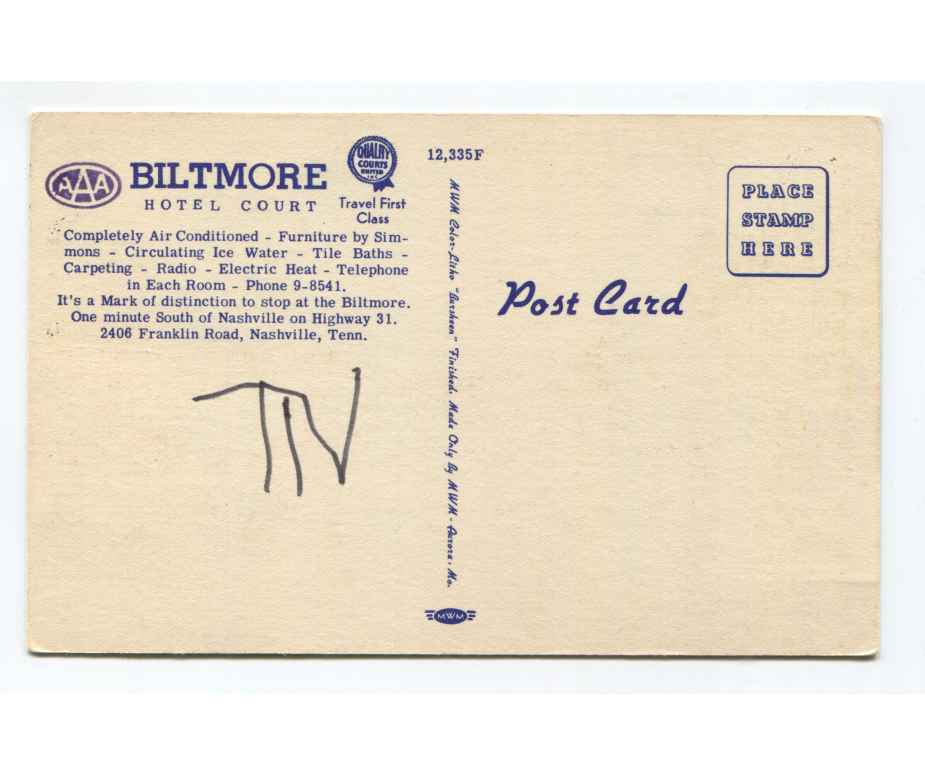 AAA
BILTMORE
HOTEL COURT
QUALITY
COURTS
UNITED
INC
Travel First
Class
Completely Air Conditioned - Furniture by Sim-
mons - Circulating Ice Water - Tile Baths -
Carpeting - Radio - Electric Heat - Telephone
in Each Room - Phone 9-8541.
It's a Mark of distinction to stop at the Biltmore.
One minute South of Nashville on Highway 31.
2406 Franklin Road, Nashville, Tenn.
12,335F
MWM Color-Litho "Varsheen" Finished. Made Only By MWM - Aurora, Mo.
MWM
Post Card
PLACE
STAMP
HERE